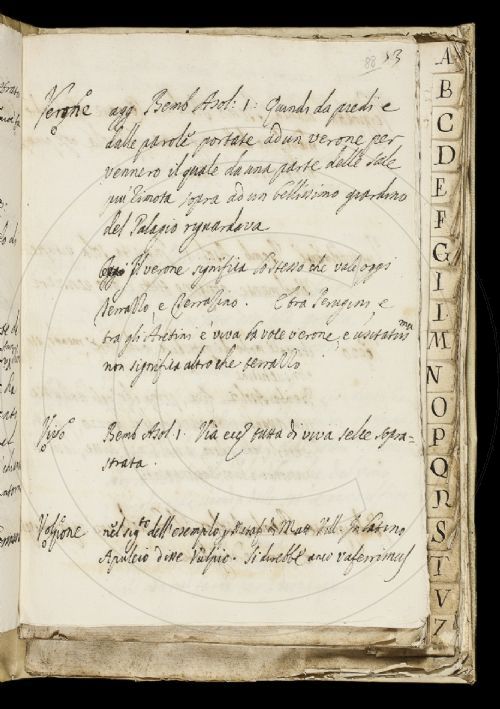 88 13
Verone agg Bemb Asol: 1: Quindi da piedi e
dalle parole portate ad un verone per
vennero il quale da una parte delle sale
piu rimota sopra ad un bellissimo giardino
del Palagio riguardava.
Il verone significa lo stesso che vale oggi
terrazzo, e terrazzino. E tra Perugini e
tra gli Aretini è viva la voce verone, e usitatissma
non significa altro che terrazzo
Viso Bemb Asol: 1. Via tutta di viva selce sopra=
strata.
Volpone nel sigto dell'esempio di Matt Vill. In latino
Apuleio disse Vulpio. Si direbbe anco vaferrimus
A
B
C
D
E
F
G
I
L
M
N
O
P
Q
R
S
T
V
Z